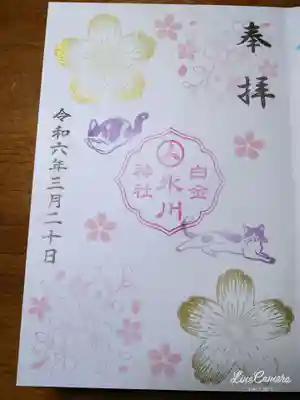 奉拝
白金
氷川
神社
令和六年三月二十日
LINE Camera